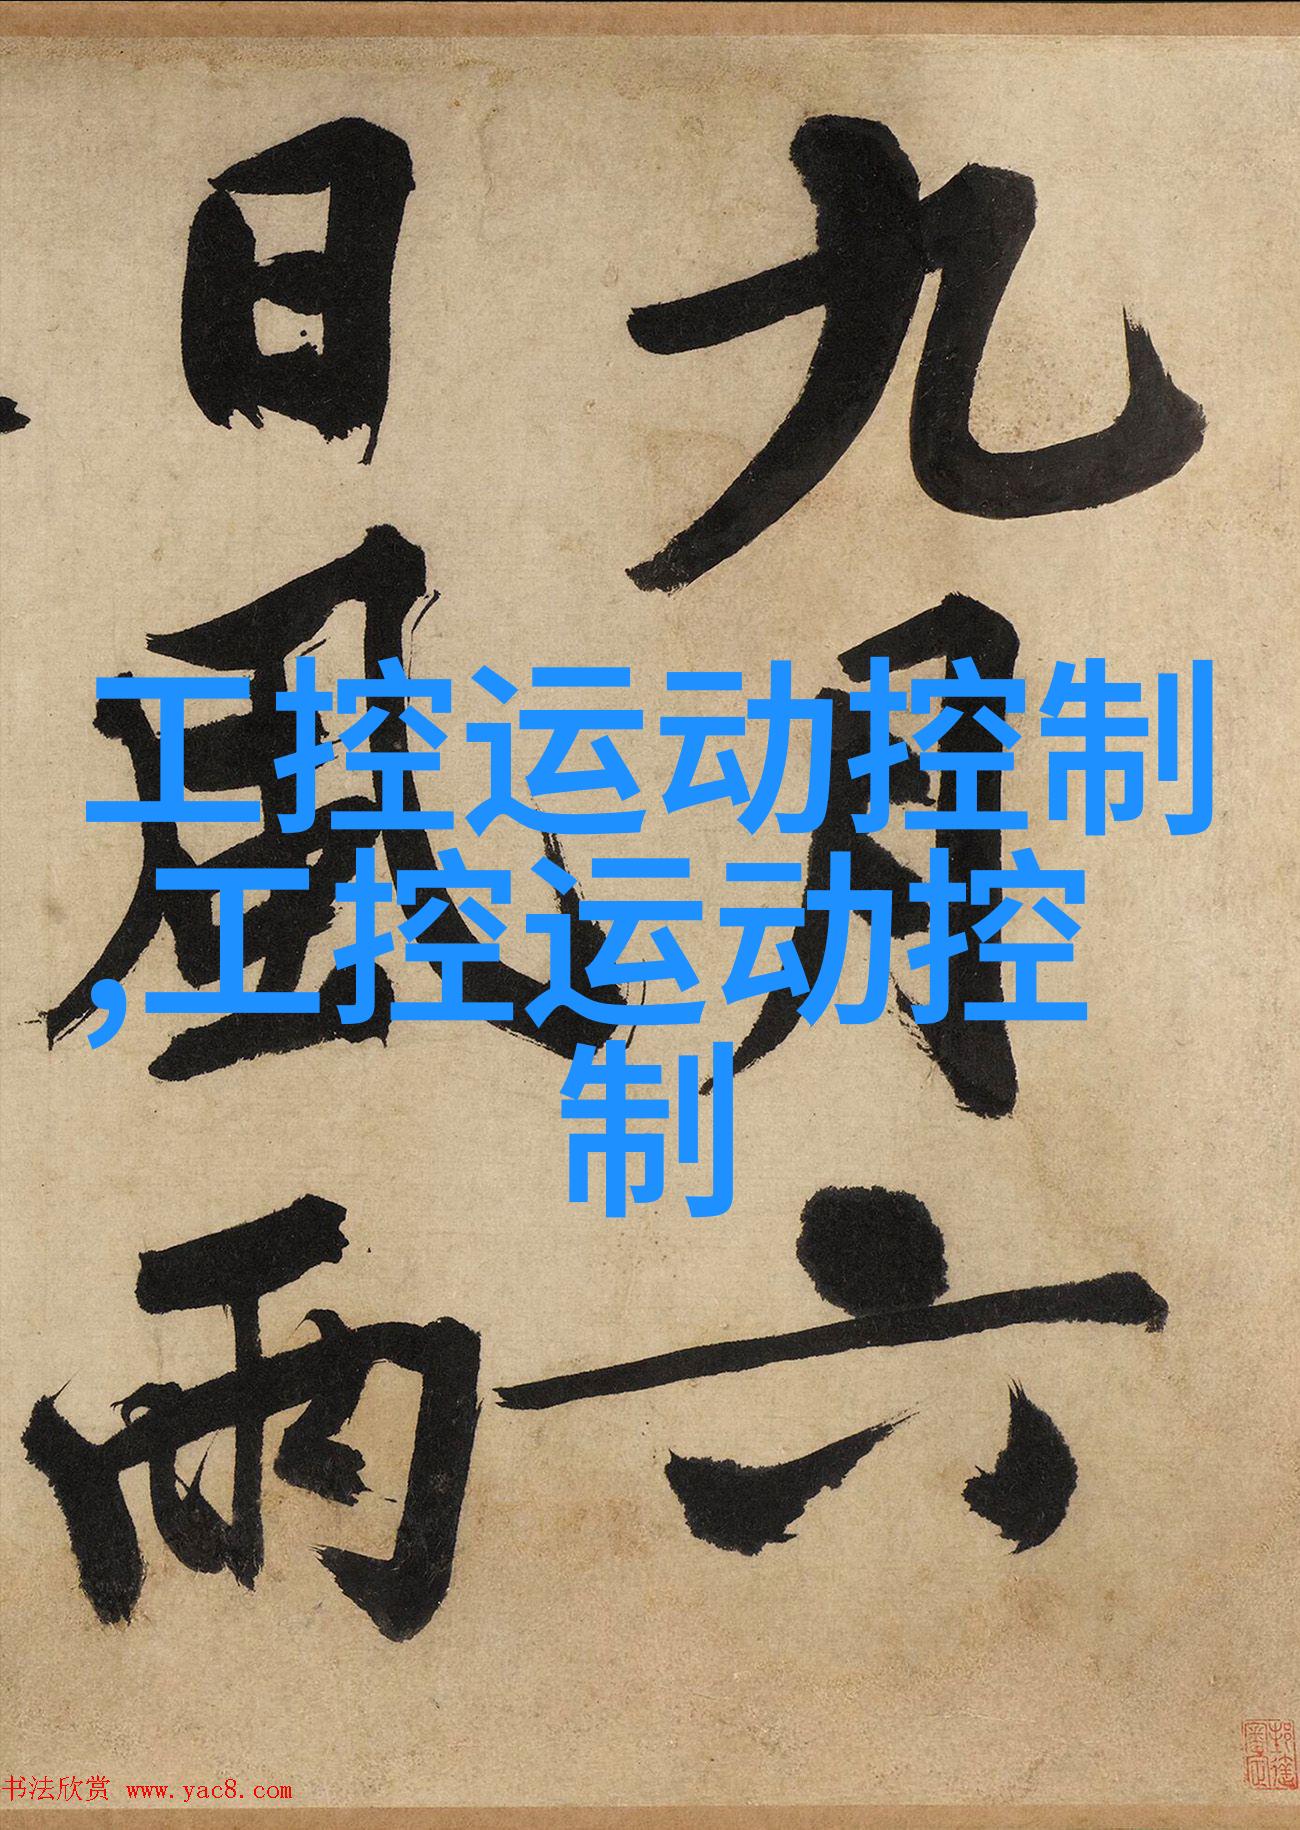 九月六
日風雨
工控运动控制
,工控运动控
制
书法欣赏 www.yac8.com